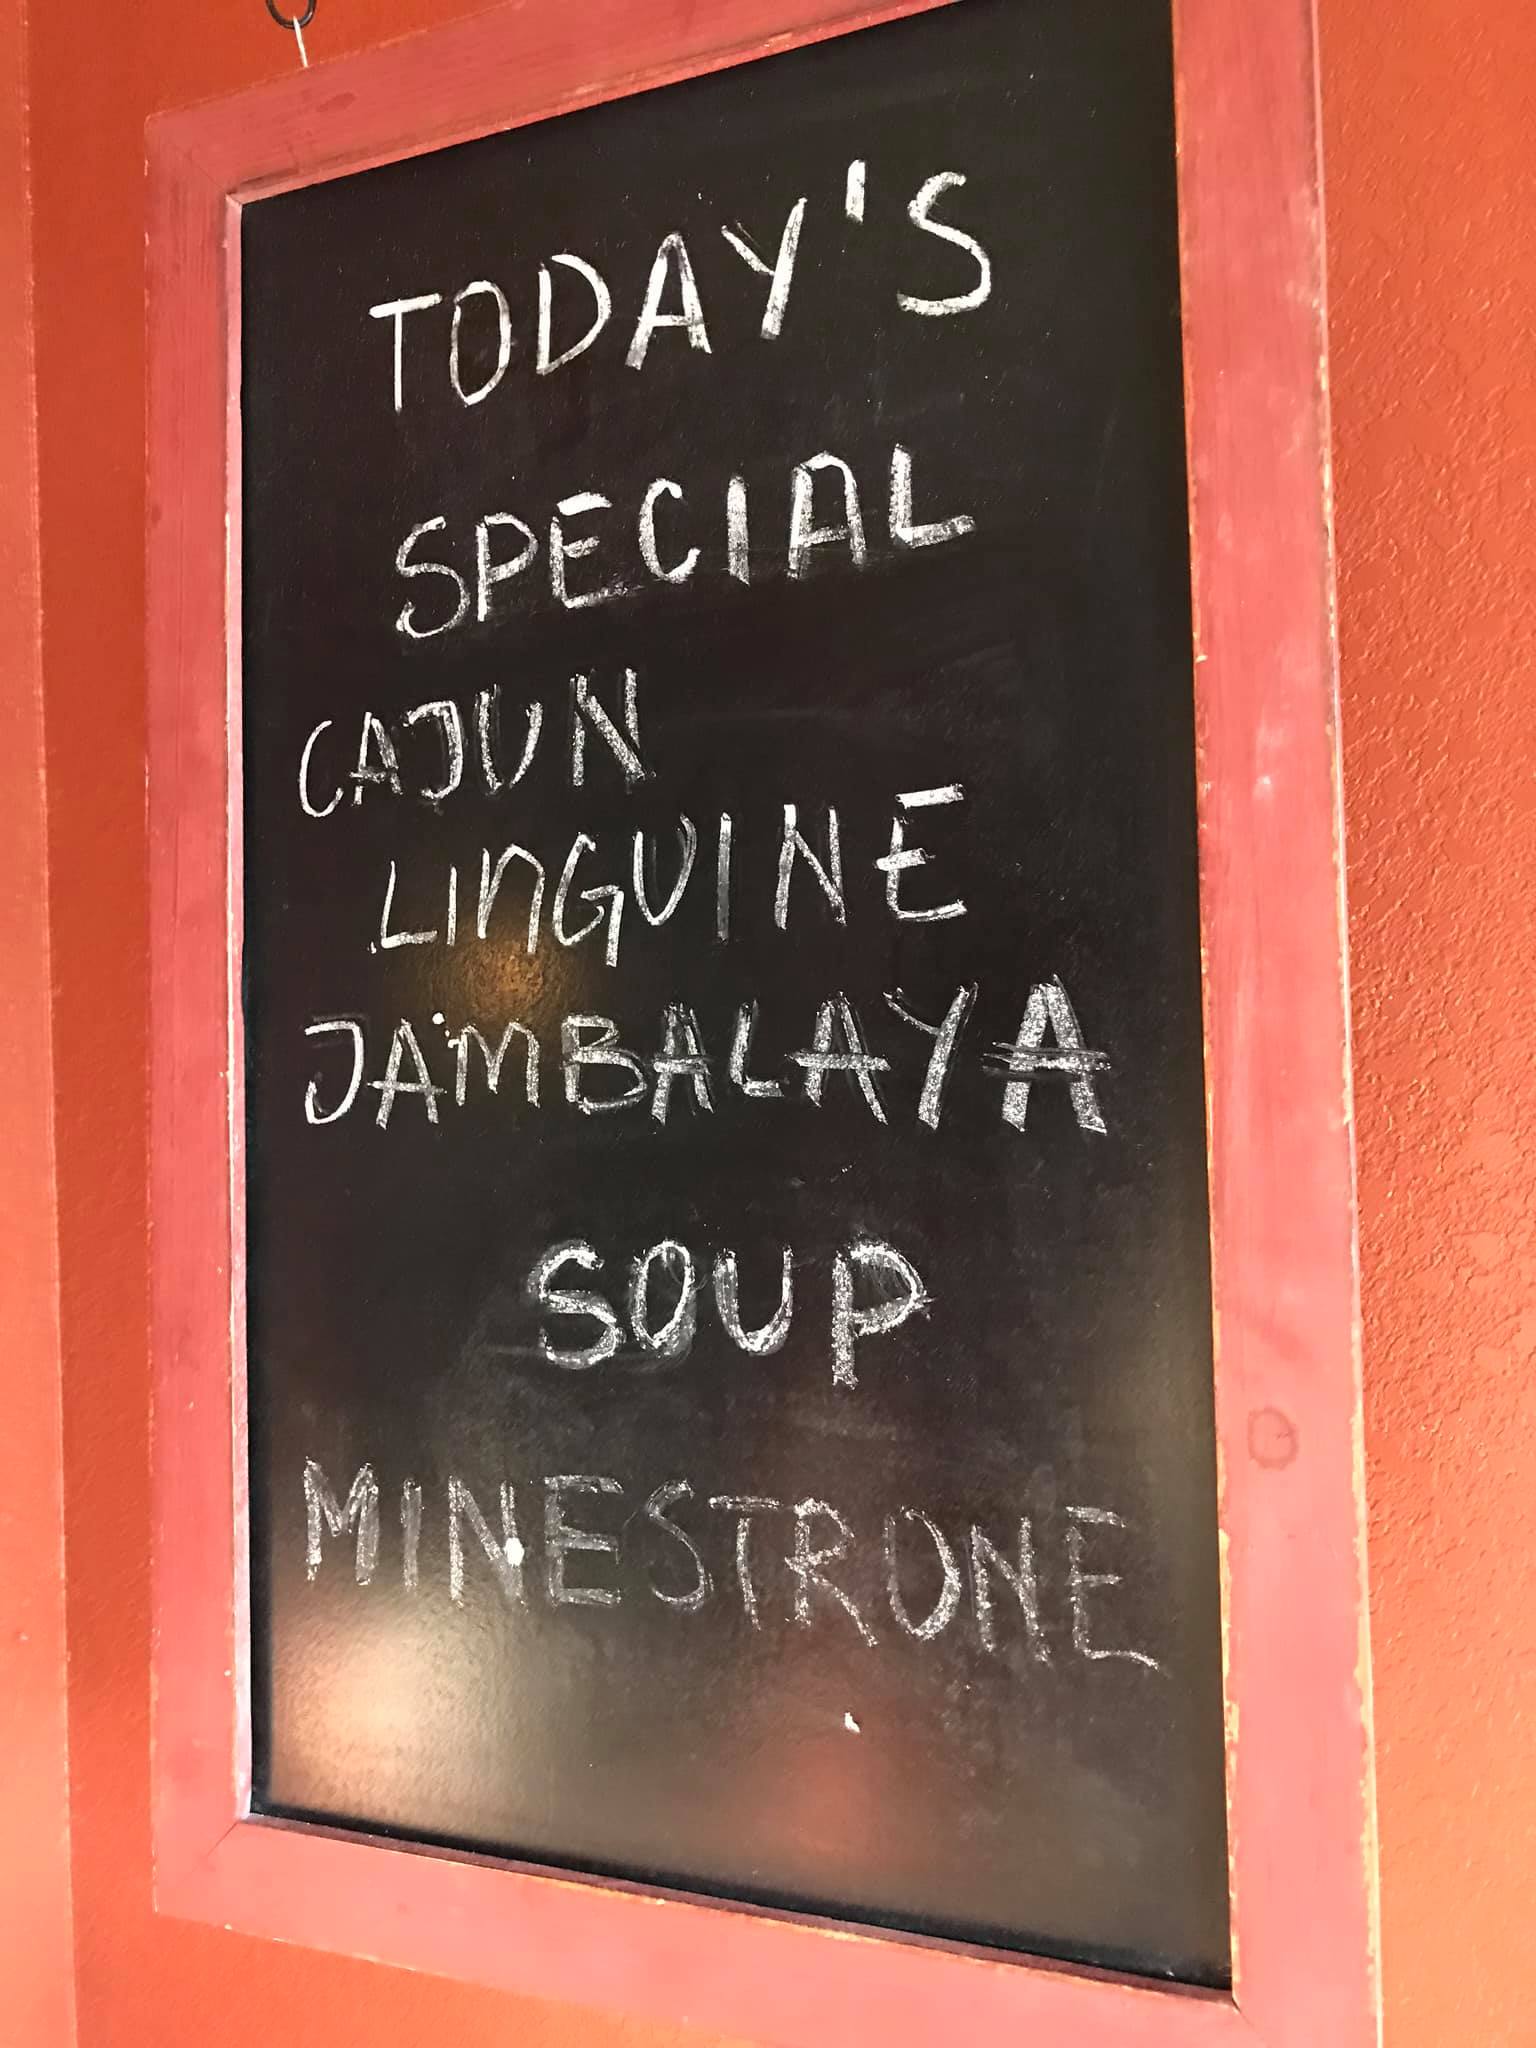 TODAY'S
SPECIAL
CAJUN
LINGUINE
JAMBALAYA
SOUP
MINESTRONE